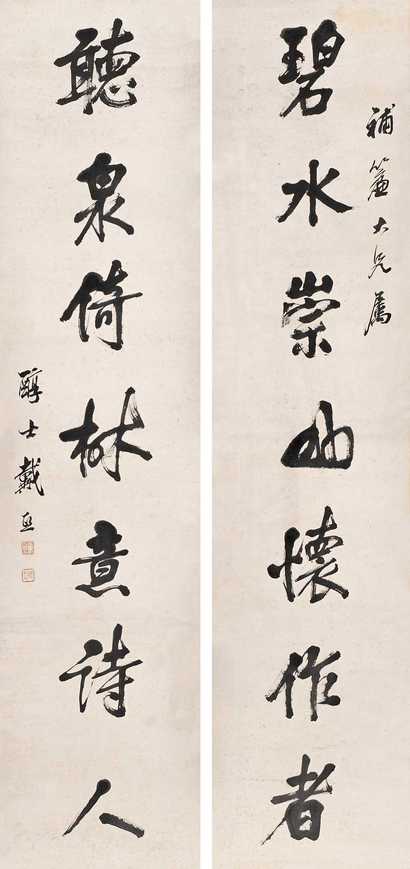 補簷大兄屬
碧水崇山懷作者
聽泉倚林意詩人
醇士戴熙